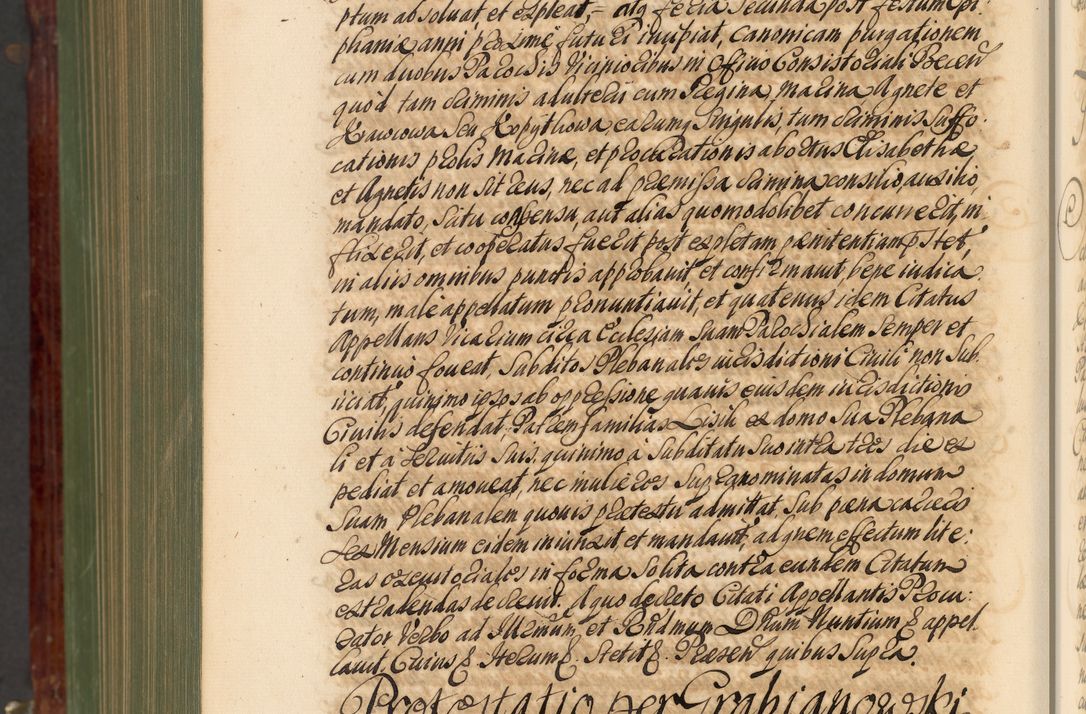 ptum absoluat et expleat, atq feria secunda post festum Epi
phaniæ anni proximè futuri incipiat, canonicam purgationem
cum duobus Parochis Vicinioribus in Officio Consistoriali
quod tam criminis adulterii cum Regina, Marina Agnete et
Krawcowa seu Kopythowa, earumq singulis, tum criminis suffo-
cationis prolis Marinæ, et procurationis abortus Elisabethæ
et Agnetis non sit reus, nec ad præmissa crimina consilio auxilio,
mandato, scitu consensu, aut alias quomodolibet concurrerit, in
fluxerit, et cooperatus fuerit post expletam pænitentiam
in aliis omnibus punctis approbauit, et confirmauit, bene iudica
tum, male appellatum pronuntiauit, et quatenus idem Citatus
Appellans Vicarium circa Ecclesiam suam Parochialem semper et
continuo foueat, Subditos Plebanales iurisdictioni Ciuili non sub
iiciat, quinimo ipsos ab oppressione quauis eiusdem iurisdictionis
Ciuilis defendat, Patrem familias Lisik ex domo sua Plebana
li et à seruitiis suis, quinimo à subditatu suo intra tres dies ex
pediat et amoueat, nec mulieres supranominatas in domum
suam Plebanalem quouis prætextu admittat sub pæna carceris
sex Mensium eidem iniunxit et mandauit, ad quem effectum lite:
ras executoriales in forma solita contra eundem Citatum
extradendas decreuit. A quo decreto Citati Appellantis Procu:
rator Verbo ad Illrmum et Rndmum Dnum Nuntium & appel
lauit. Cuius & Iterum & Stetit & Præsen quibus supra.
Protestatio per Grabianowski